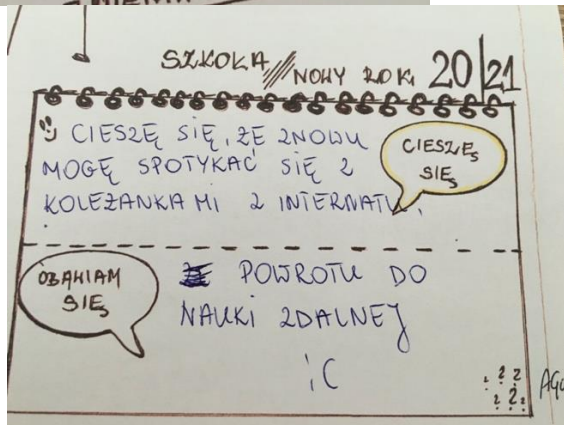 SZKOŁA // NOWY ROK 20|21
:) CIESZĘ SIĘ, ŻE ZNOWU
MOGĘ SPOTYKAĆ SIĘ Z
KOLEŻANKAMI Z INTERNATU.
CIESZĘ
SIĘ
OBAWIAM
SIĘ
POWROTU DO
NAUKI ZDALNEJ
;C
? ? ?
? ? ?